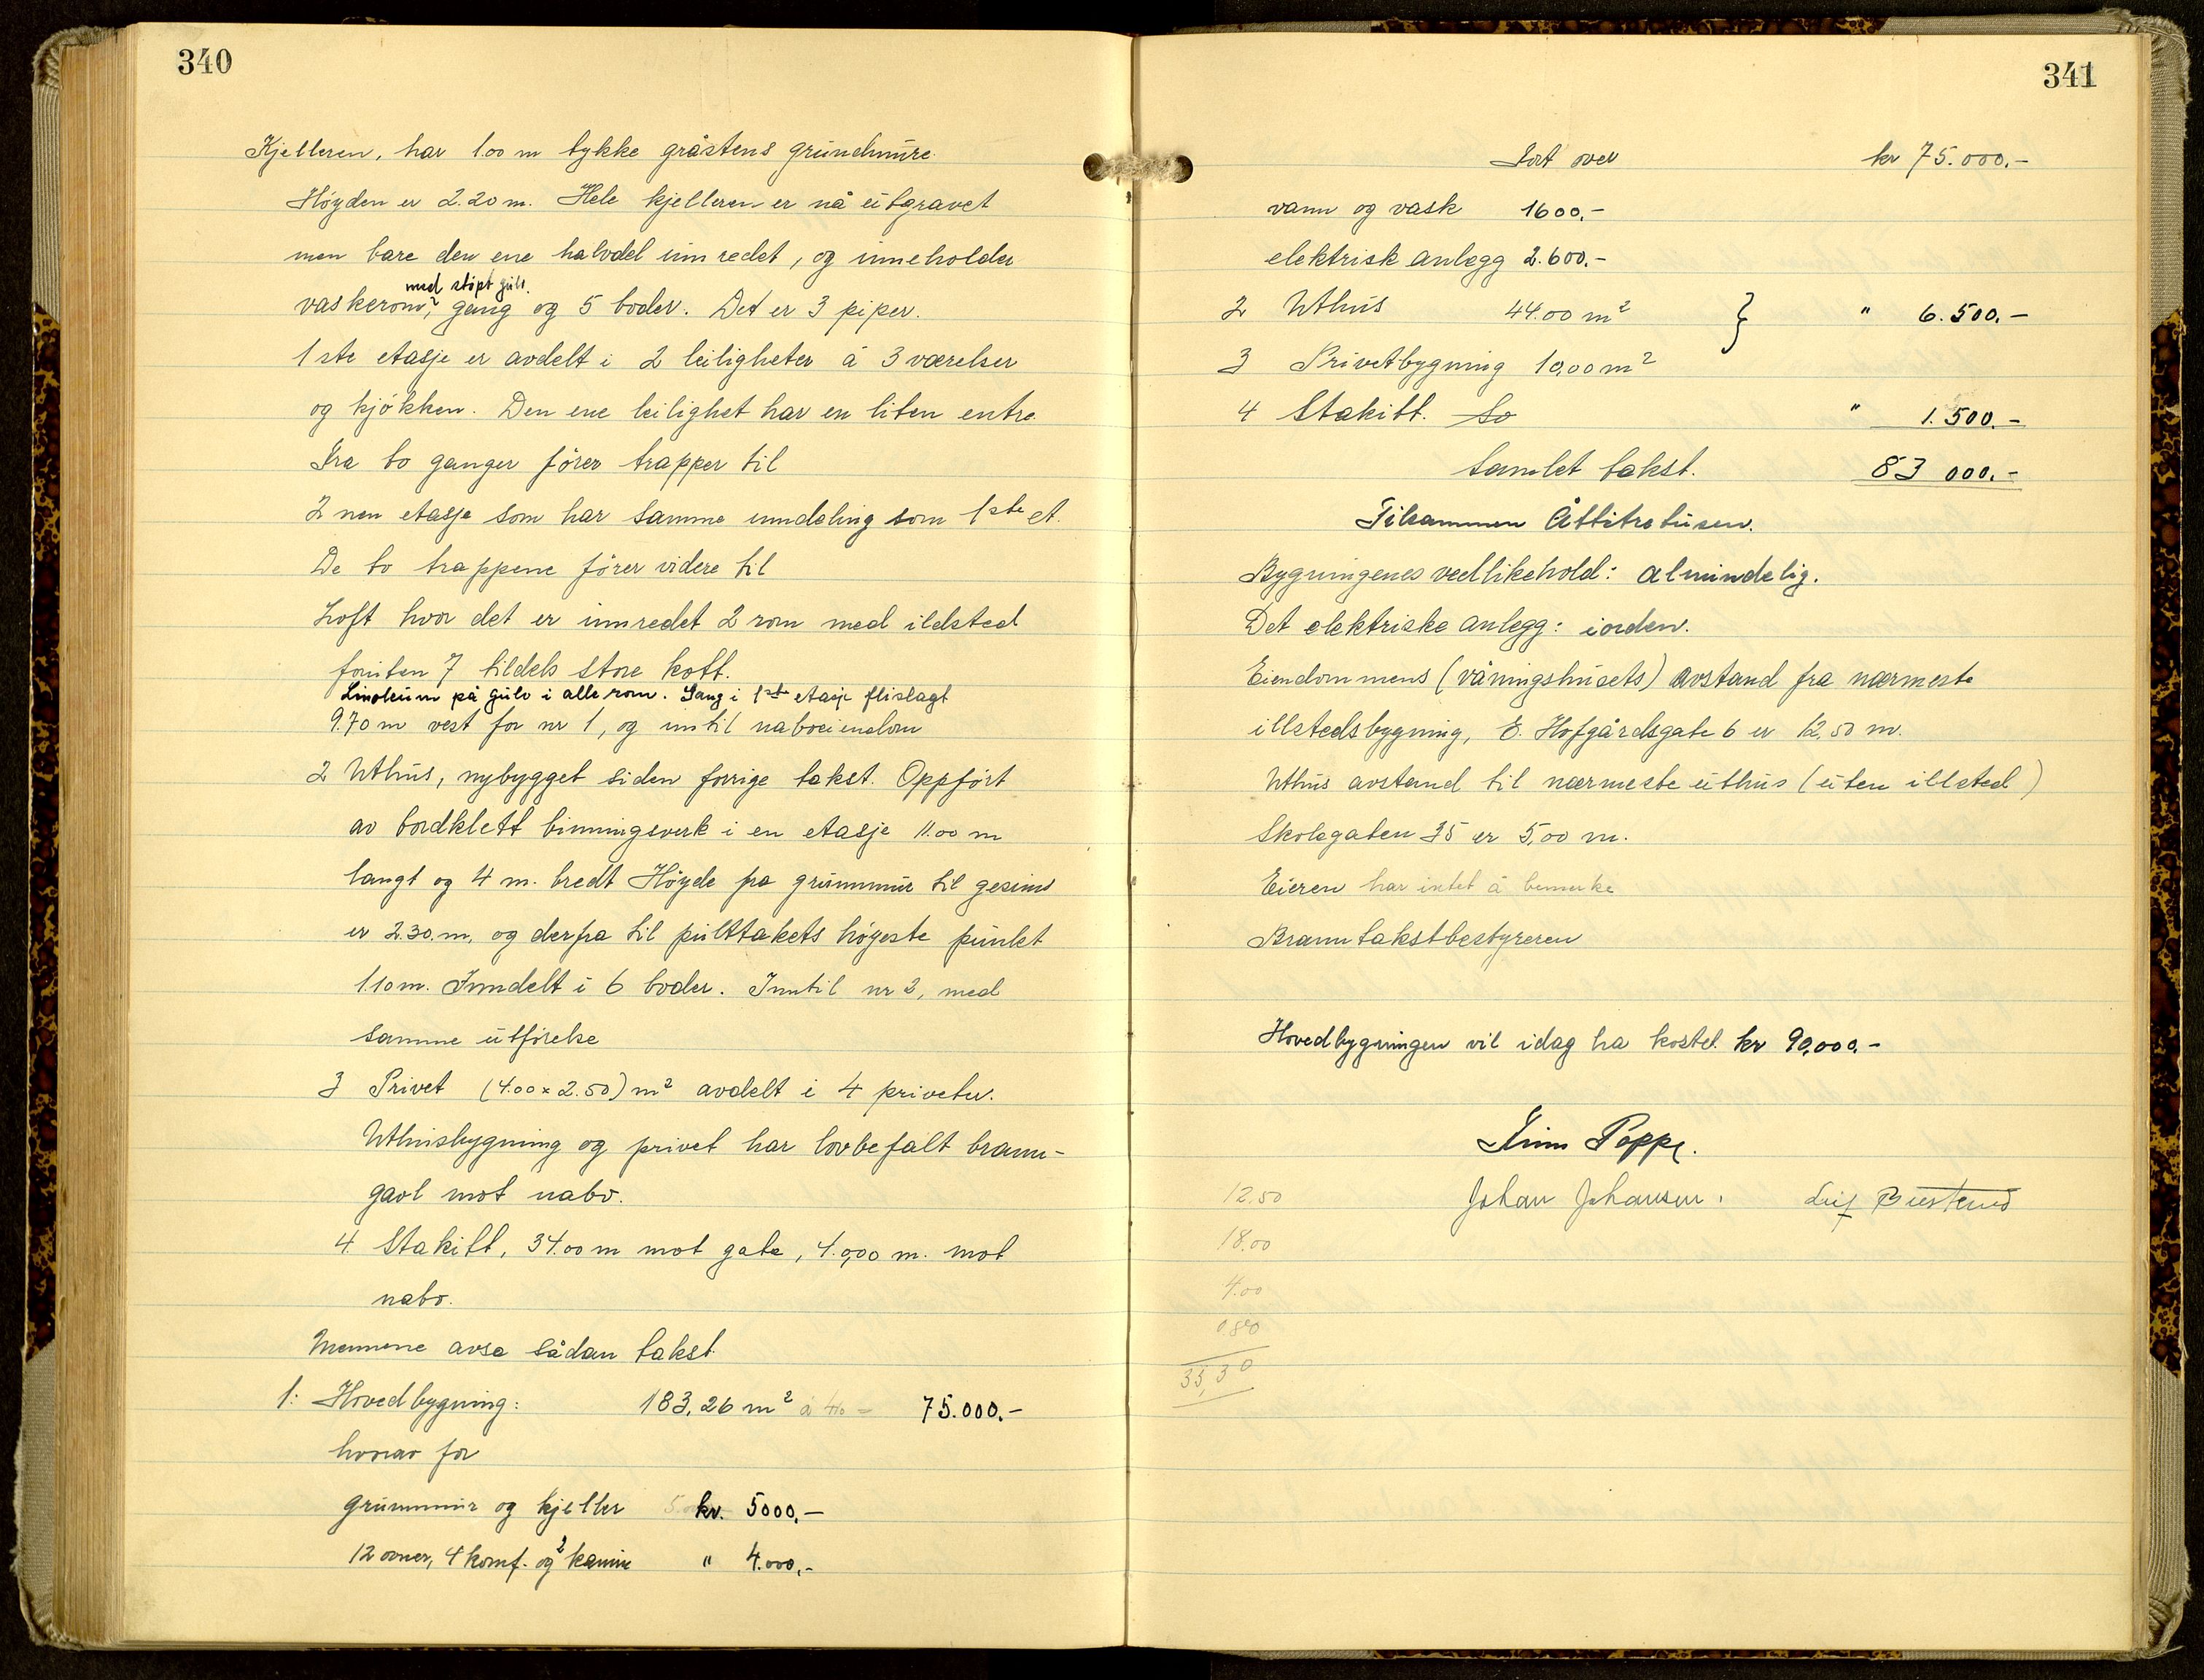 340
Kjelleren, har 1.00 m tykke gråstens grundmure.
Høyden er 2.20 m. Hele kjelleren er nå utgravet
men bare den ene halvdel innredet, og inneholder
med støpt gulv.
vaskerom, gang og 5 boder. Det er 3 piper.
1ste etasje er avdelt i 2 leiligheter á 3 værelser
og kjøkken. Den ene leilighet har en liten entre.
Fra to ganger fører trapper til
2nen etasje som har samme inndeling som 1ste et.
De to trappene fører videre til
Loft hvor det er innredet 2 rom med ildsted
foruten 7 tildels store kott.
Linoleum på gulv i alle rom. Gang i 1ste etasje flislagt
9.70 m vest for nr 1, og inntil naboeiendom
2 Uthus, nybygget siden forrige takst. Oppført
av bordklett binningsverk i en etasje 11.00 m
langt og 4 m. bredt Høyde fra grunnmur til gesims
er 2.30.m, og derfra til pulttakets høyeste punkt
1.10m. Inndelt i 6 boder. Inntil nr 2, med
samme utførelse
3 Privet (4.00 x 2.50) m² avdelt i 4 priveter.
Uthusbygning og privet har lovbefalt brann-
gavl mot nabo.
4 Stakitt, 34.00 m mot gate, 40,00 m. mot
nabo.
Mennene avsa sådan takst
1: Hovedbygning: 183,26 m² á 410 = 75.000.-
hvorav for
grunnmur og kjeller kr. 5000,-
12 ovner, 4 komf. og 2 kamin " 4.000,-
341
Fort over kr 75.000.-
vann og vask 1600,-
elektrisk anlegg 2.600.-
2 Uthus 44.00 m² } " 6.500.-
3 Privetbygning 10,00 m²
4 Stakitt. So " 1.500.-
Samlet takst. 83 000.-
Tilsammen Åttitretusen.
Bygningenes vedlikehold: almindelig.
Det elektriske anlegg: iorden.
Eiendommens (våningshusets) avstand fra nærmeste
illstedsbygning, E. Hofgårdsgate 6 er 12,50 m.
Uthus avstand til nærmeste uthus (uten illsted)
Skolegaten 35 er 5,00 m.
Eieren har intet å bemerke
Branntakstbestyreren
Hovedbygningen vil idag ha kostet kr 90,000.-
Finn Poppe.
Johan Johansen. Leif Buestund
12.50
18.00
4.00
0.80
35,30